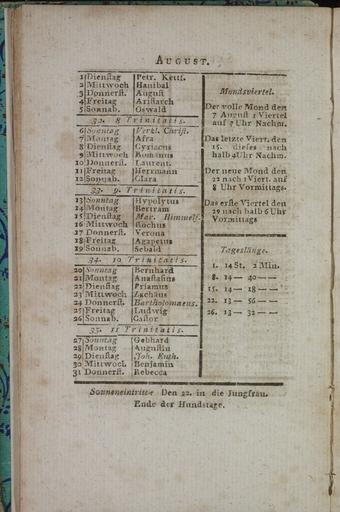 August.
1 Dienstag Petr. Kettf.
2 Mittwoch Hanibal
3 Donnerst. August
4 Freitag Aristarch
5 Sonnab. Oswald
32. 8 Trinitatis.
6 Sonntag Verkl. Christ.
7 Montag Afra
8 Dienstag Cyriacus
9 Mittwoch Romanus
10 Donnerst. Laurent.
11 Freitag Herrmann
12 Sonnab. Clara
33. 9. Trinitatis.
13 Sonntag Hypolytus
14 Montag Bertram
15 Dienstag Mar. Himmelf.
16 Mittwoch Rochus
17 Donnerst. Verona
18 Freitag Agapetus
19 Sonnab. Sebald
34. 10 Trinitatis.
20 Sonntag Bernhard
21 Montag Anastasius
22 Dienstag Priamus
23 Mittwoch Zachäus
24 Donnerst. Bartholomaeus.
25 Freitag Ludwig
26 Sonnab. Castor
35. 11 Trinitatis.
27 Sonntag Gebhard
28 Montag Augustin
29 Dienstag Joh. Enth.
30 Mittwoch Benjamin
31 Donnerst. Rebecca
Mondsviertel.
Der volle Mond den
7 August 1 Viertel
auf 7 Uhr Nachm.
Das letzte Viert. den
15. dieses nach
halb 4Uhr Nachm.
Der neue Mond den
22 nach 1 Viert. auf
8 Uhr Vormittags.
Das erste Viertel den
29 nach halb 6 Uhr
Vormittags
Tageslänge.
1. 14 St. 2 Min.
8. 14 — 40 — —
15. 14 — 18 — —
22. 13 — 56 — —
26. 13 — 32 — —
Sonneneintritt Den 22. in die Jungfrau.
Ende der Hundstage.